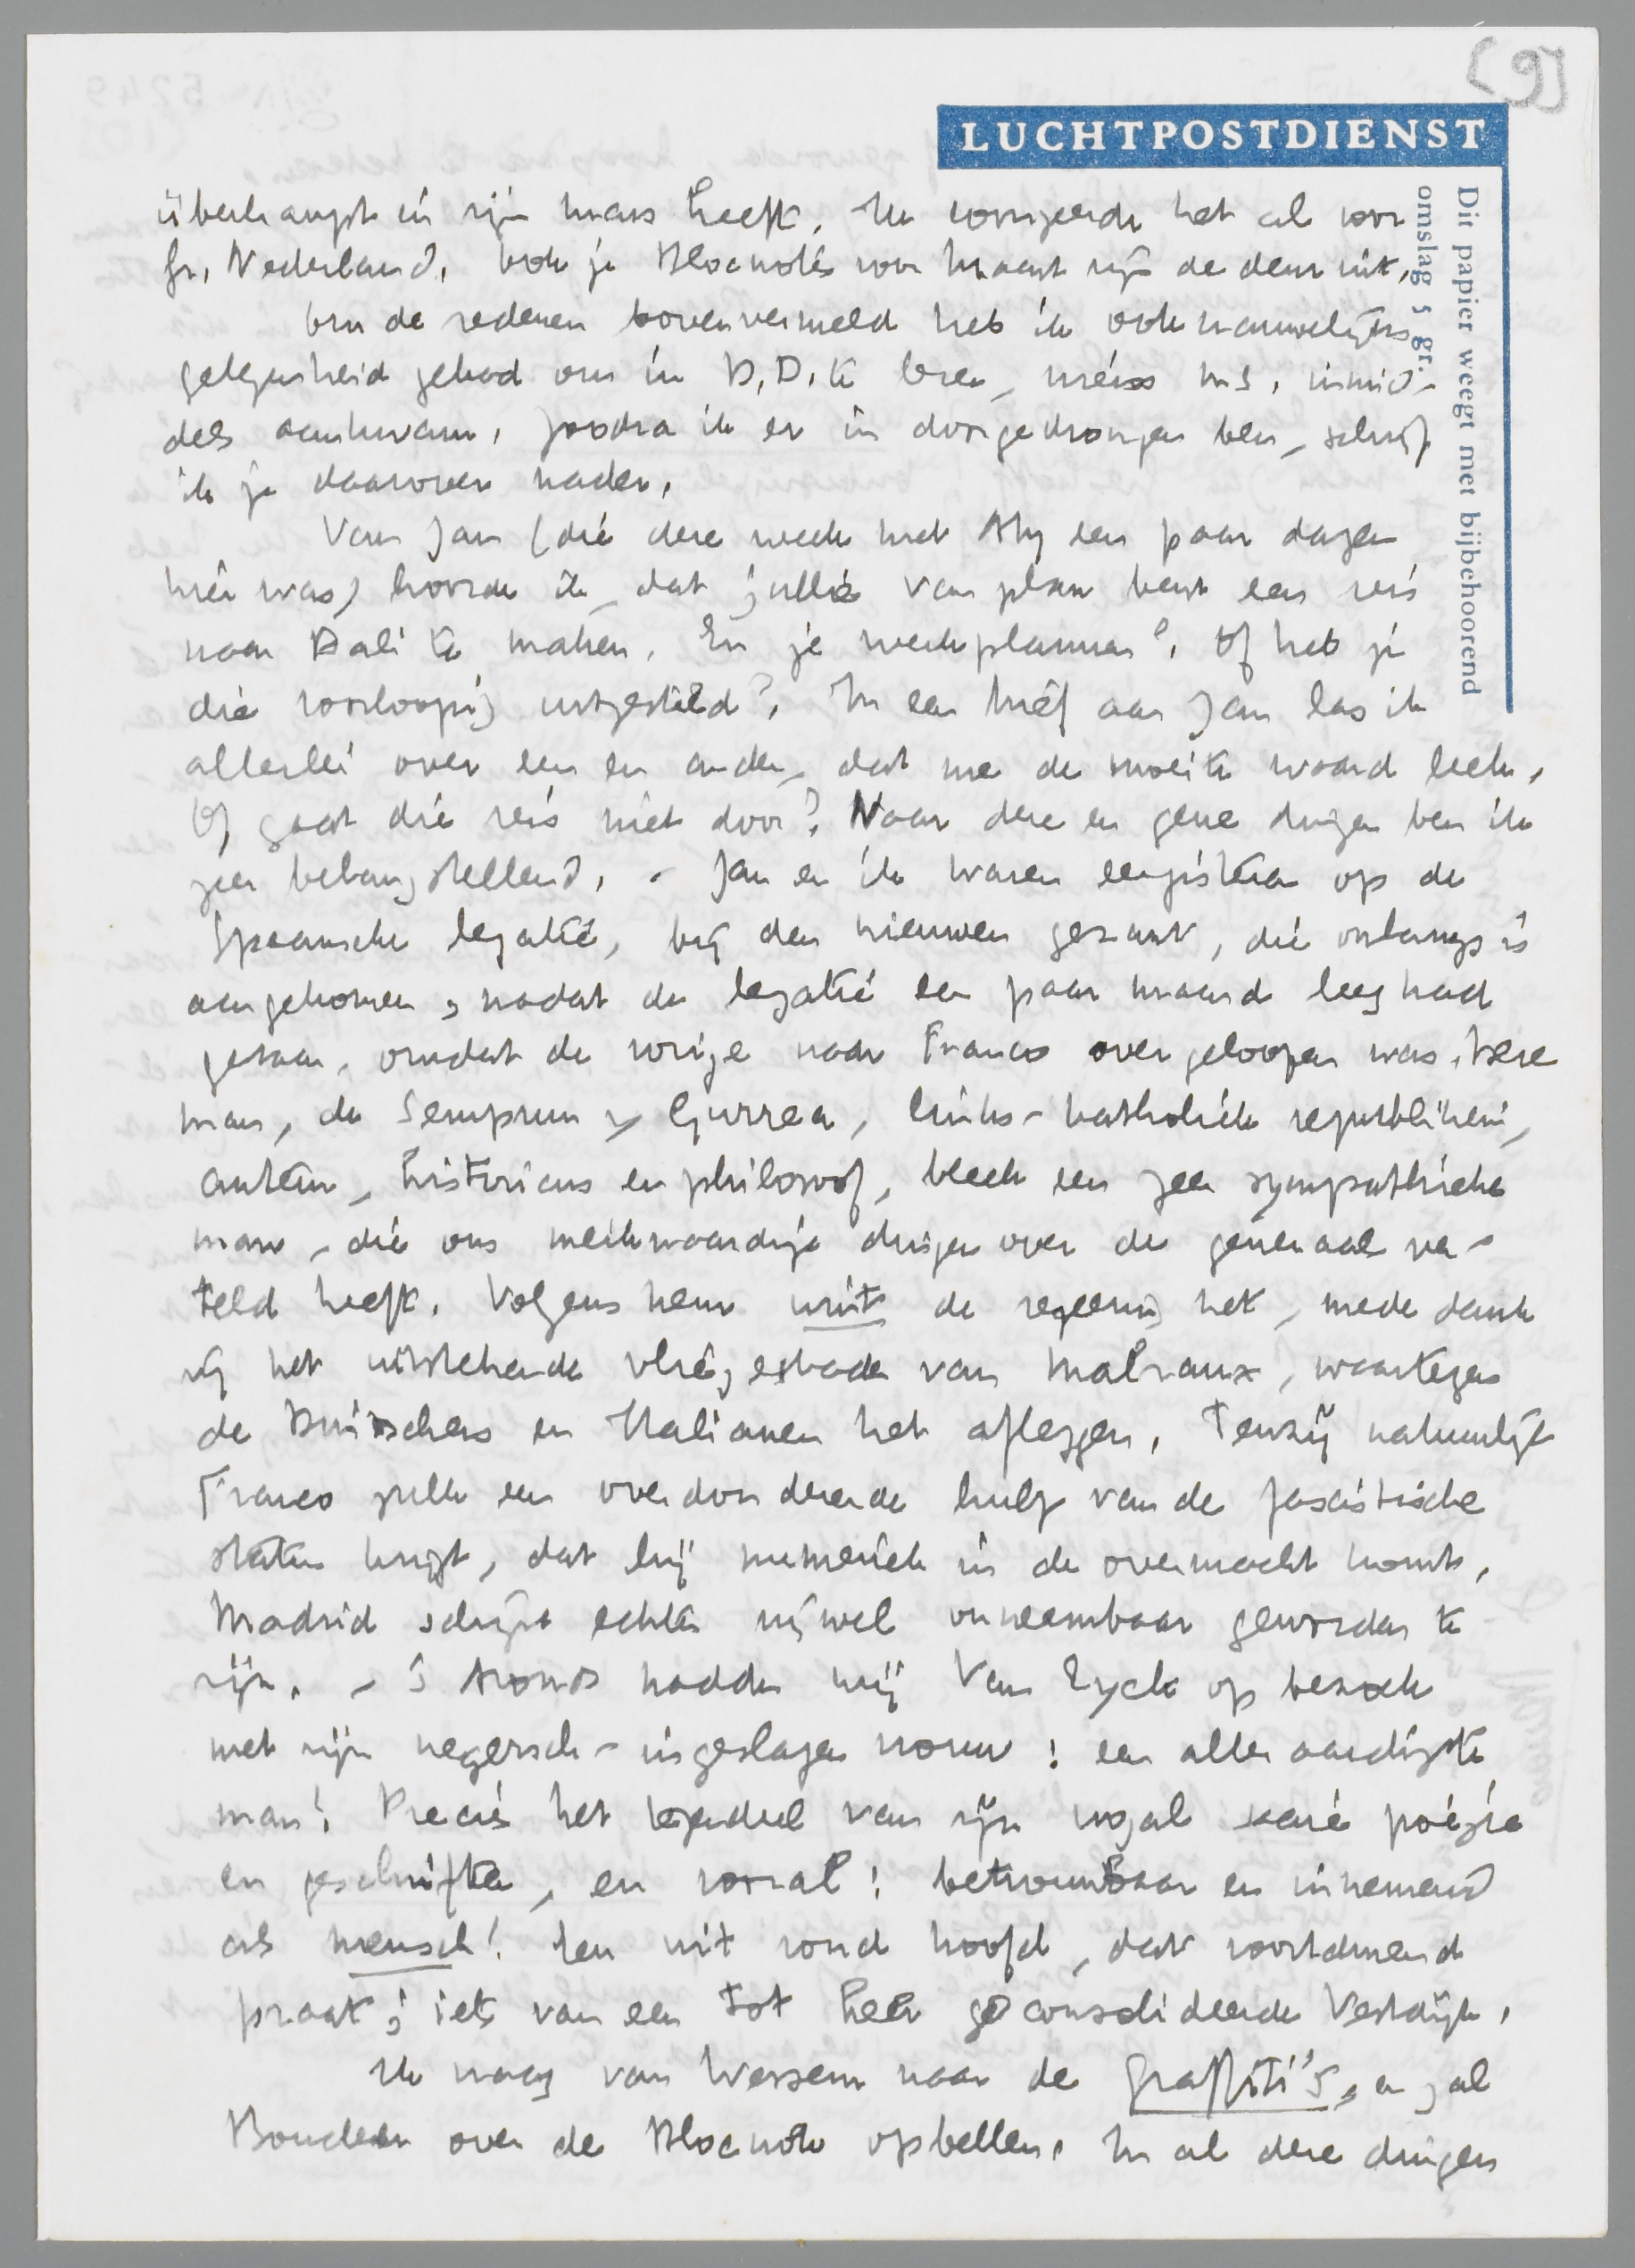 [9]
LUCHTPOSTDIENST
Dit papier weegt met bijbehoorend
omslag 5 gr.
überhaupt in zijn mars heeft. Ik corrigeerde het al voor
Gr. Nederland. Ook je Blocnotes voor Maart zijn de deur uit.
Om de redenen bovenvermeld heb ik ook nauwelijks
gelegenheid gehad om in D.D. te lezen, welks ms. inmid-
dels aankwam. Zoodra ik er in doorgedrongen ben, schrijf
ik je daarover nader.
Van Jan (die deze week met Aty een paar dagen
hier was) hoorde ik, dat jullie van plan bent een reis
naar Bali te maken. En je werkplannen? Of heb je
die voorloopig uitgesteld? In een brief aan Jan las ik
allerlei over een en ander, dat me de moeite waard leek.
Of gaat die reis niet door? Naar deze en gene dingen ben ik
zeer belangstellend. - Jan en ik waren eergisteren op de
Spaansche legatie, bij den nieuwen gezant, die onlangs is
aangekomen, nadat de legatie een paar maand leeg had
gestaan, omdat de vorige naar Franco overgeloopen was. Deze
man, de Semprun y Gurrea, links-katholiek republikein,
auteur, historicus en philosoof, bleek een zeer sympathieke
man, die ons merkwaardige dingen over de generaal ver-
teld heeft. Volgens hem wint de regeering het, mede dank
zij het uitstekende vliegeskader van Malraux, waartegen
de Duitschers en Italianen het afleggen. Tenzij natuurlijk
Franco zulk een overdonderende hulp van de fascistische
staten krijgt, dat hij numeriek in de overmacht komt.
Madrid schijnt echter vrijwel onneembaar geworden te
zijn. - 's Avonds hadden wij Van Eyck op bezoek
met zijn negersch-ingeslagen vrouw: een alleraardigste
man! Precies het tegendeel van zijn nogal saaie poëzie
en geschriften, en vooral: betrouwbaar en innemend
als mensch! Een wit rond hoofd, dat voortdurend
praat; iets van een tot heer geconsolideerde Vestdijk.
Ik vraag van Wessem naar de Graffiti's, en zal
Boucher over de Blocnote opbellen. In al deze dingen